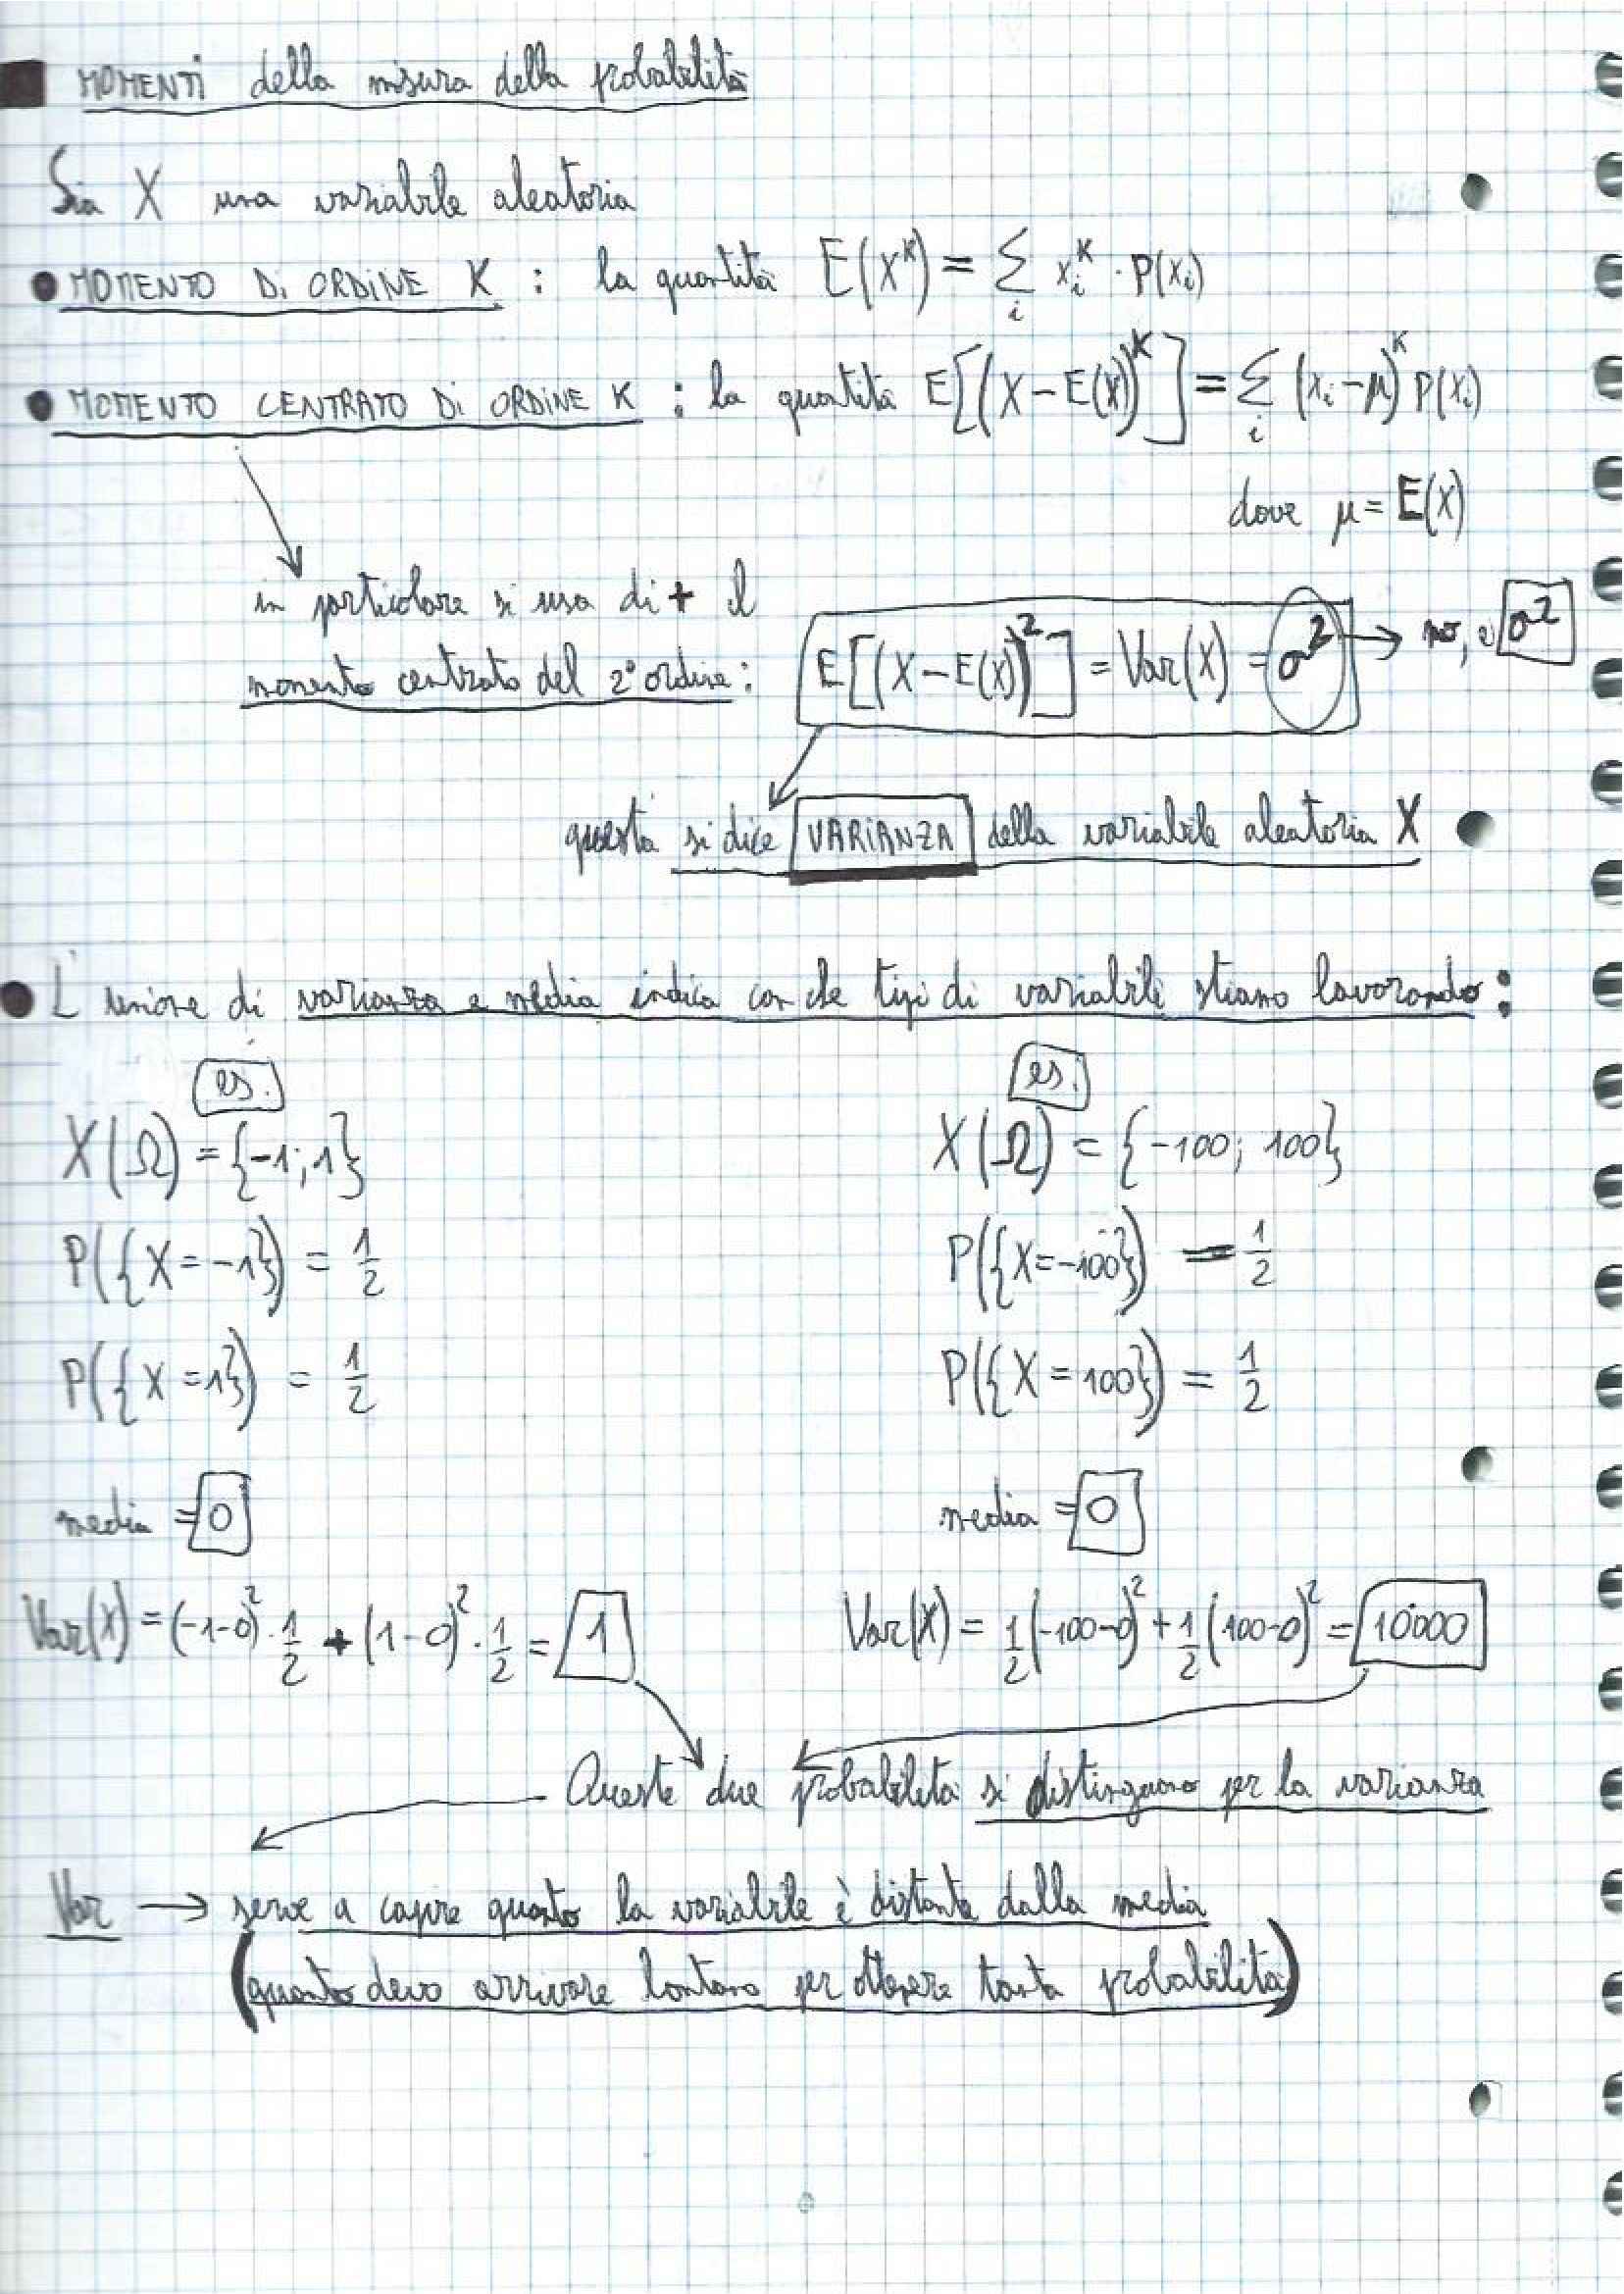 MOMENTI della misura della probabilità
Sia X una variabile aleatoria
• MOMENTO DI ORDINE K : la quantità E(X^K) = Σ_i x_i^K · P(x_i)
• MOMENTO CENTRATO DI ORDINE K : la quantità E[(X-E(X))^K] = Σ_i (x_i-μ)^K P(x_i)
dove μ = E(X)
in particolare si usa di + il
momento centrato del 2° ordine: E[(X-E(X))^2] = Var(X) = σ^2 → no, è σ^2
questa si dice VARIANZA della variabile aleatoria X
• L'unione di varianza e media indica con che tipi di variabili stiamo lavorando:
es. es.
X(Ω) = {-1; 1} X(Ω) = {-100; 100}
P({X=-1}) = 1/2 P({X=-100}) = 1/2
P({X=1}) = 1/2 P({X=100}) = 1/2
media = 0 media = 0
Var(X) = (-1-0)^2 · 1/2 + (1-0)^2 · 1/2 = 1 Var(X) = 1/2(-100-0)^2 + 1/2(100-0)^2 = 10000
Queste due probabilità si distinguono per la varianza
Var → serve a capire quanto la variabile è distante dalla media
(quanto devo arrivare lontano per ottenere tanta probabilità)